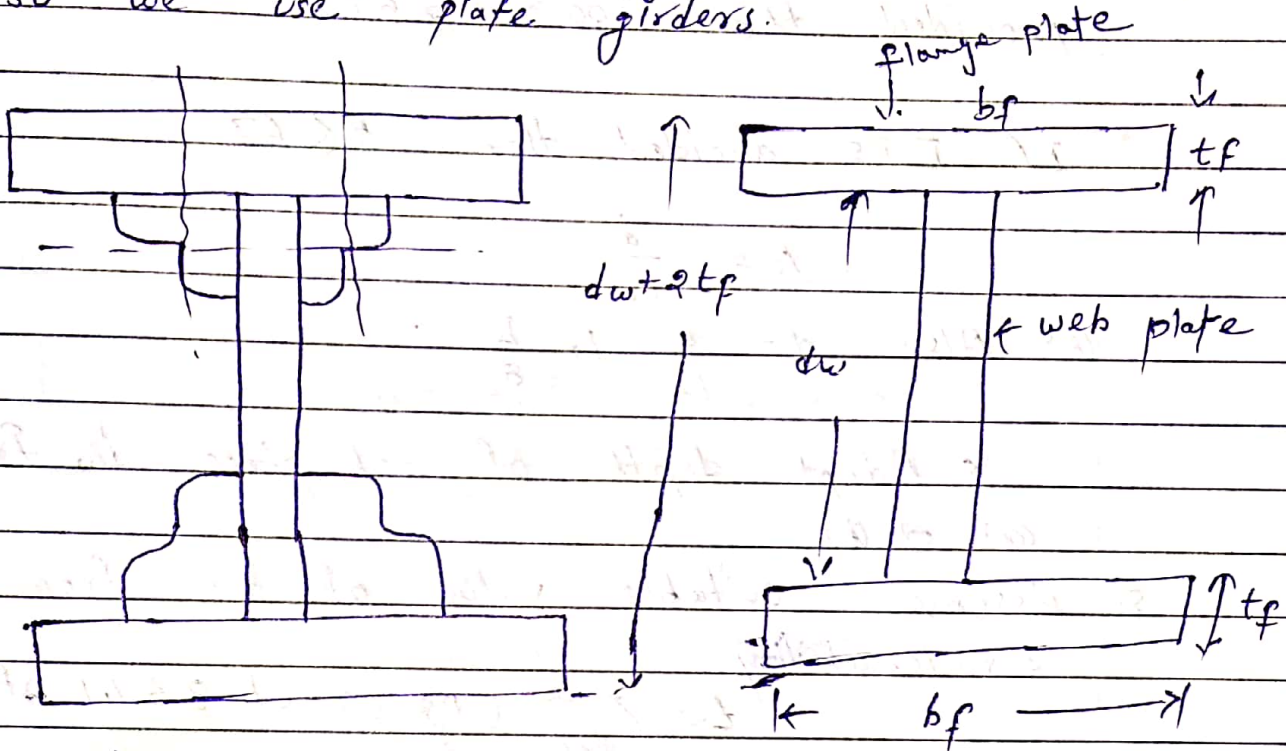 so we use plate girders.
flange plate
bf
tf
dw+2tf
← web plate
dw
tf
bf